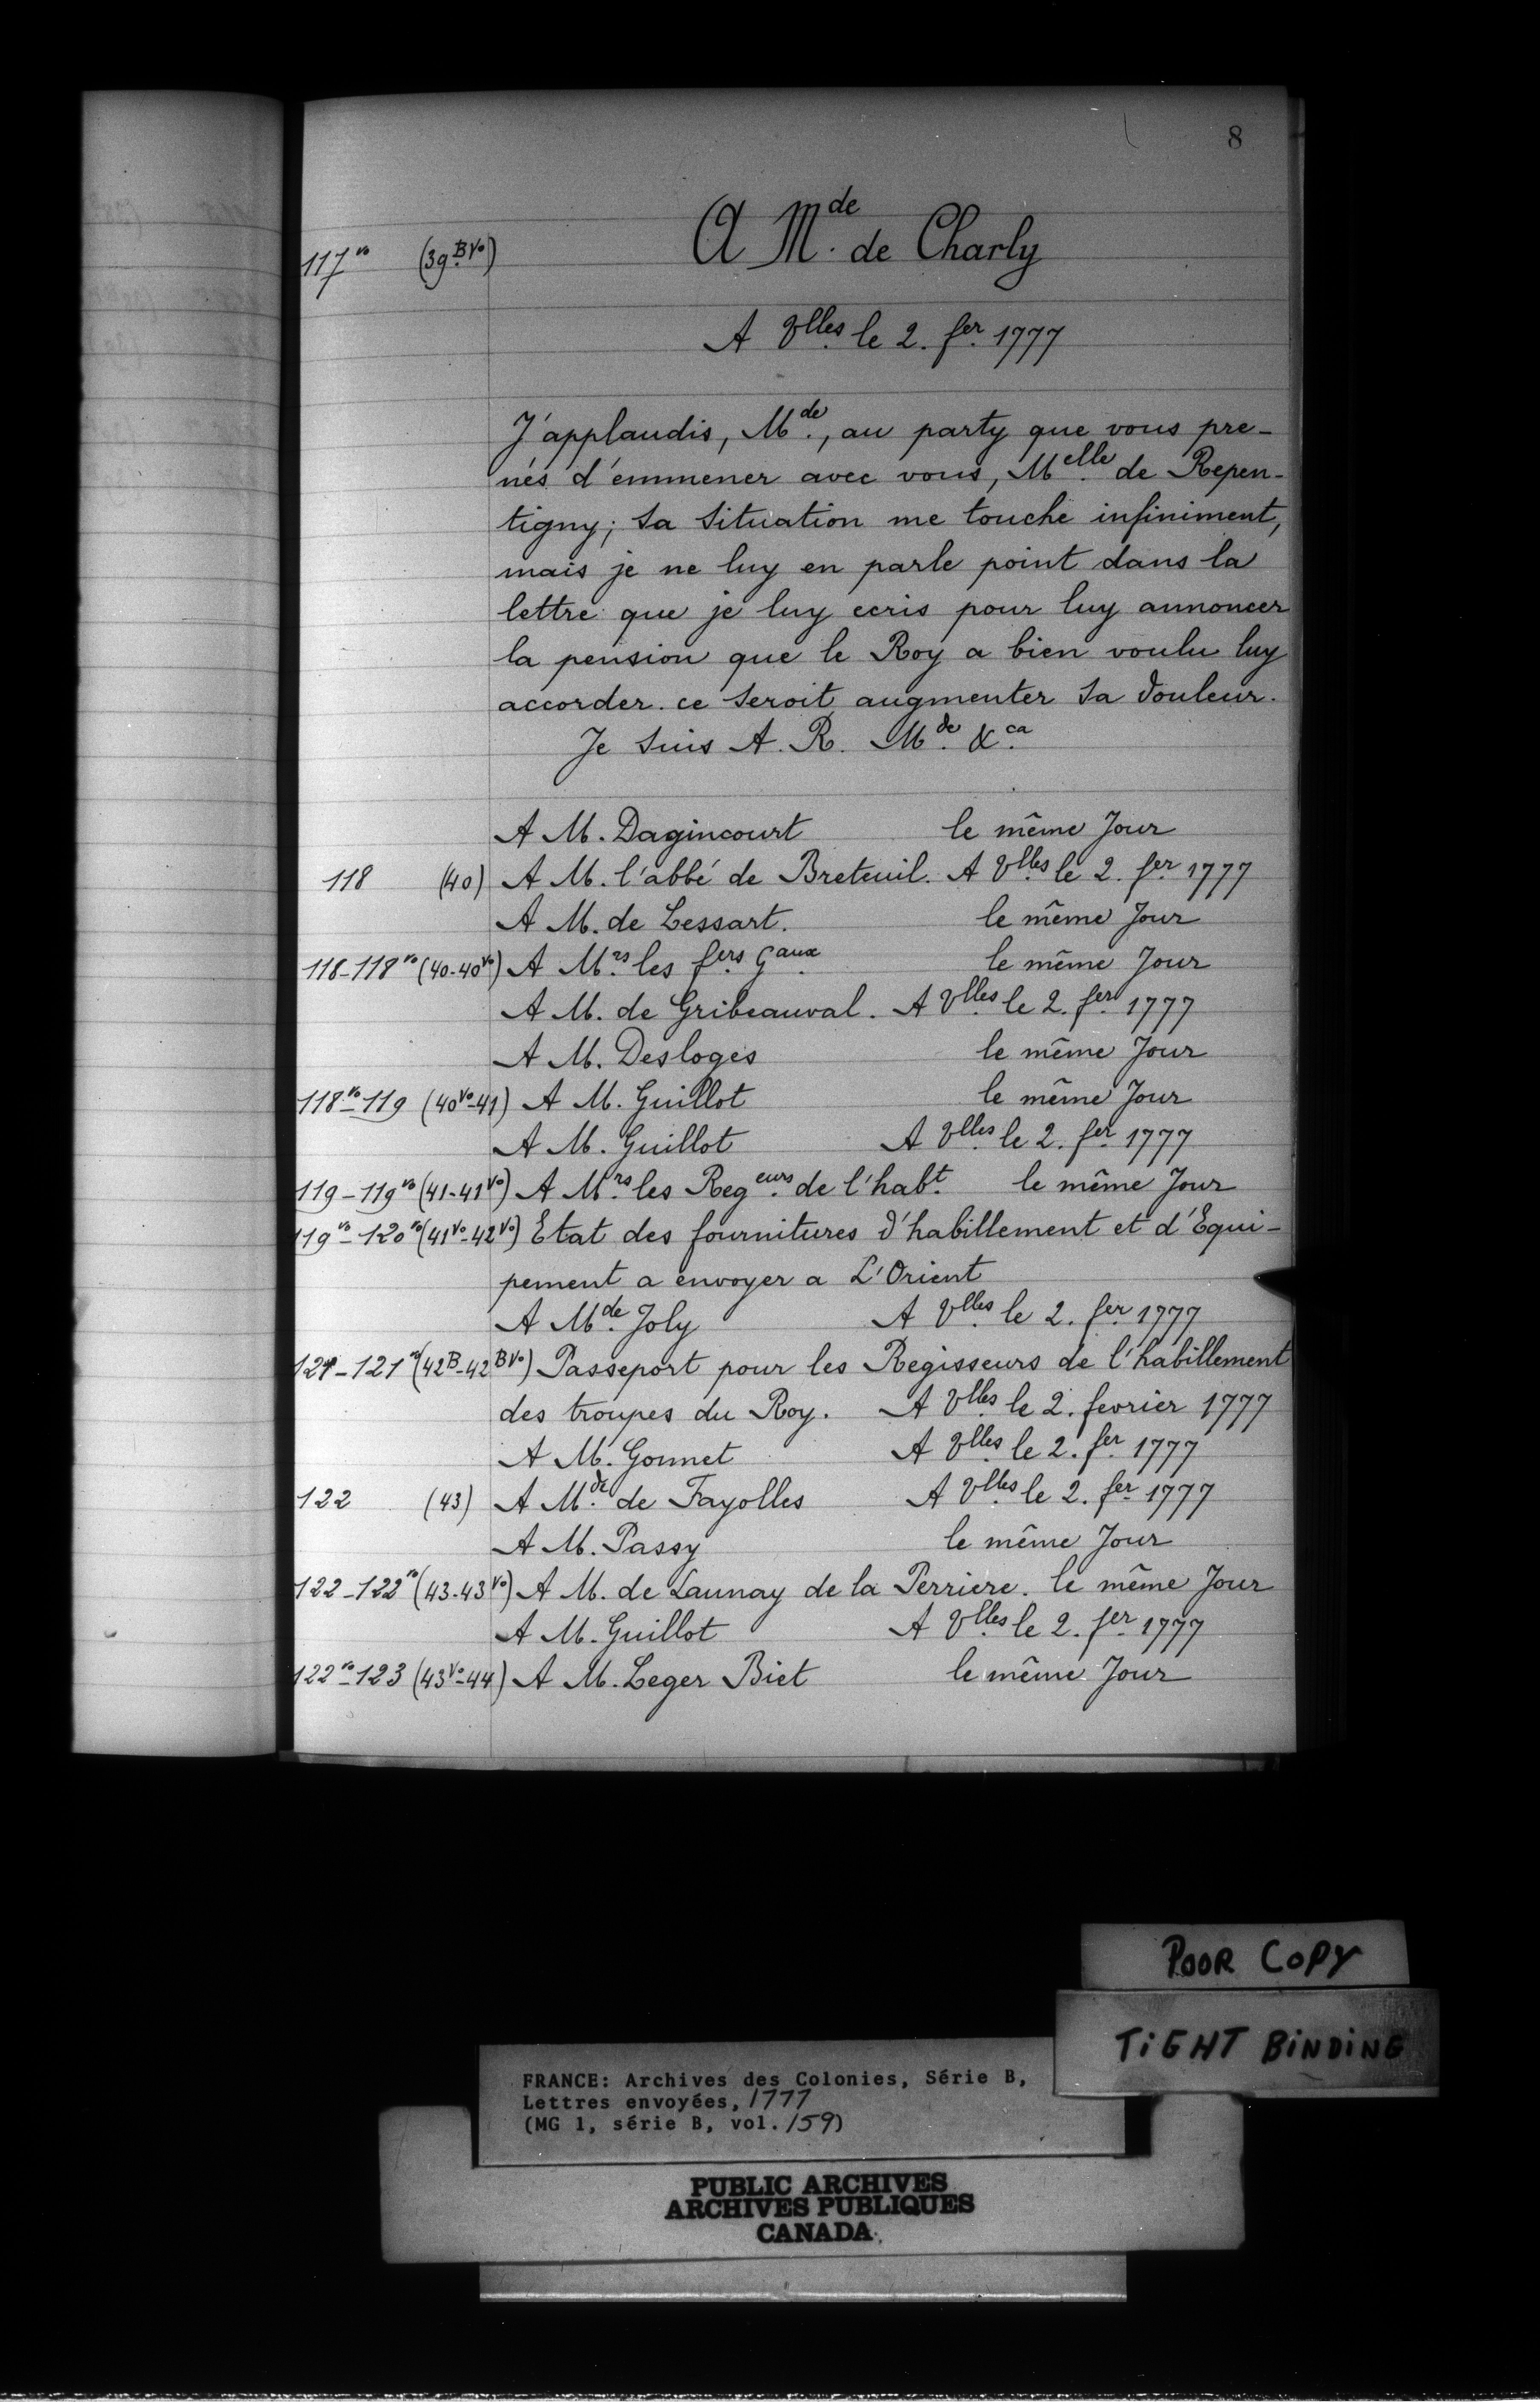 8
117 vo (39 B vo) A Mde. de Charly
A Vlles. le 2. fer. 1777
J'applaudis, Mde., au party que vous pre-
nés d'emmener avec vous, Melle. de Repen-
tigny; sa situation me touche infiniment,
mais je ne luy en parle point dans la
lettre que je luy ecris pour luy annoncer
la pension que le Roy a bien voulu luy
accorder. ce seroit augmenter sa douleur.
Je suis A. R. Mde. &ca.
A M. Dagincourt le même Jour
118 (40) A M. l'abbé de Breteuil. A Vlles. le 2. fer. 1777
A M. de Lessart. le même Jour
118-118 vo (40-40 vo) A Mrs. les fers. Gaux. le même Jour
A M. de Gribeauval. A Vlles. le 2. fer. 1777
A M. Desloges le même Jour
118 vo-119 (40 vo-41) A M. Guillot le même Jour
A M. Guillot A Vlles. le 2. fer. 1777
119-119 vo (41-41 vo) A Mrs. les Regeurs. de l'habt. le même Jour
119 vo-120 vo (41 vo-42 vo) Etat des fournitures d'habillement et d'Equi-
pement a envoyer a L'Orient
A Mde. Joly A Vlles. le 2. fer. 1777
121-121 vo (42B-42 B vo) Passeport pour les Regisseurs de l'habillement
des troupes du Roy. A Vlles. le 2. fevrier 1777
A M. Gonnet A Vlles. le 2. fer. 1777
122 (43) A Mde. de Fayolles A Vlles. le 2. fer. 1777
A M. Passy le même Jour
122-122 vo (43-43 vo) A M. de Launay de la Perriere. le même Jour
A M. Guillot A Vlles. le 2. fer. 1777
122 vo-123 (43 vo-44) A M. Leger Biet le même Jour
POOR COPY
TiGHT BiNDiNG
FRANCE: Archives des Colonies, Série B,
Lettres envoyées, 1777
(MG 1, série B, vol. 159)
PUBLIC ARCHIVES
ARCHIVES PUBLIQUES
CANADA